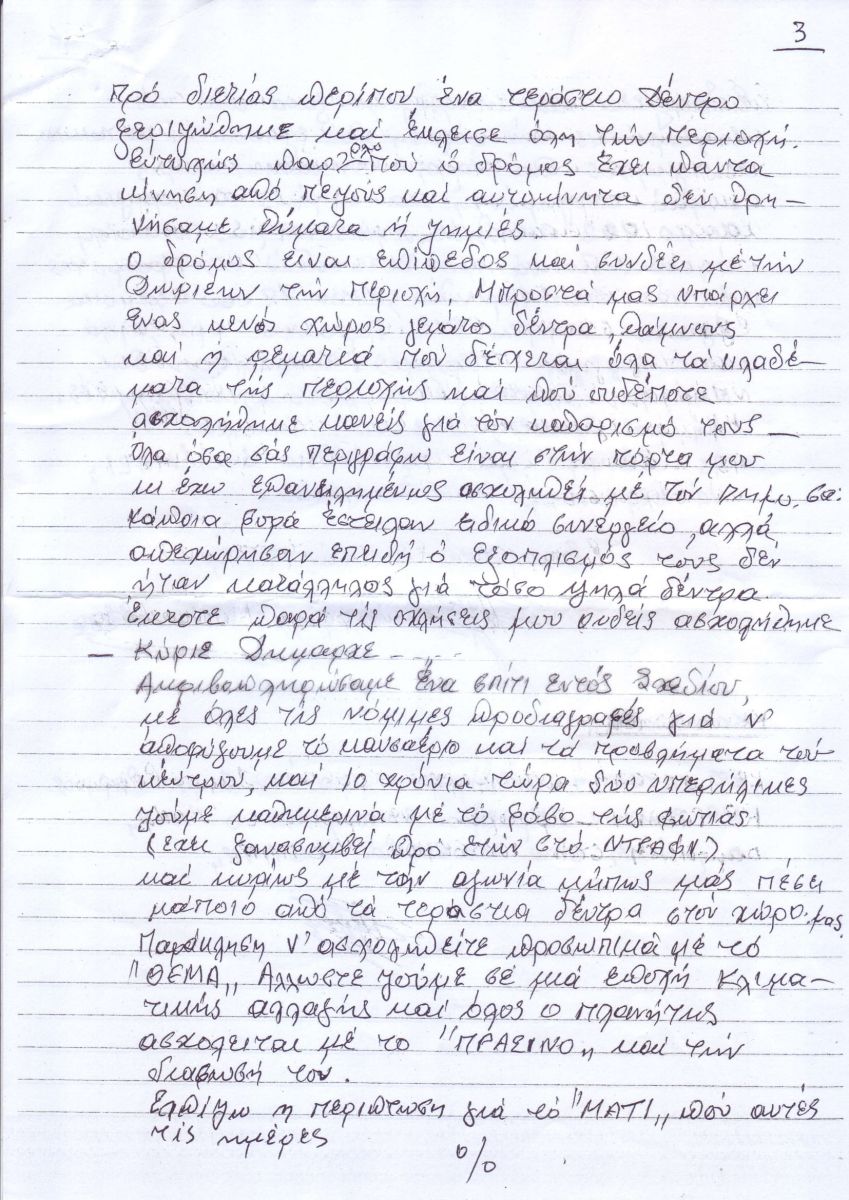 3
Πρό διετίας περίπου ένα τεράστιο Δέντρο
ξεριζώθηκε καί έκλεισε όλη τήν περιοχή.
Ευτυχώς παρ' όλο πού ό δρόμος έχει πάντα
κίνηση από πεζούς καί αυτοκίνητα δέν θρη-
νήσαμε θύματα ή ζημιές
Ο δρόμος είναι επίπεδος καί συνδέει μέ τήν
Δωριέων τήν περιοχή, Μπροστά μας υπάρχει
ένας κενός χώρος γεμάτος δέντρα, θάμνους
καί ή ρεματιά πού δέχεται όλα τά κλαδέ-
ματα τής περιοχής καί πού ουδέποτε
ασχολήθηκε κανείς γιά τόν καθαρισμό τους —
Όλα όσα σάς περιγράφω είναι στήν πόρτα μου
κι έχω επανειλημμένως ασχοληθεί μέ τον
Κάποια φορά έστειλαν ειδικό συνεργείο, αλλά
απεχώρησαν επειδή ό εξοπλισμός τούς δέν
ήταν κατάλληλος γιά τόσο ψηλά δέντρα.
Έκτοτε παρά τίς οχλήσεις μου ουδείς ασχολήθηκε
— Κύριε Δήμαρχε - ....
Ακριβοπληρώσαμε ένα σπίτι εντός Σχεδίου,
μέ όλες τίς νόμιμες προδιαγραφές γιά ν'
αποφύγουμε τό καυσαέριο καί τά προβλήματα τού
κέντρου, καί 10 χρόνια τώρα δύο υπερήλικες
ζούμε καθημερινά μέ τό φόβο τής φωτιάς
(έχει ξανασυμβεί πρό ετών στό ΝΤΡΑΦΙ.)
καί κυρίως μέ τήν αγωνία μήπως μάς πέσει
κάποιο από τά τεράστια δέντρα στόν χώρο μας
Παράκληση ν' ασχοληθείτε προσωπικά μέ τό
"ΘΕΜΑ,, Άλλωστε ζούμε σέ μιά εποχή Κλιμα-
τικής αλλαγής καί όλος ο πλανήτης
ασχολείται μέ το "ΠΡΑΣΙΝΟ,, καί τήν
διάσωσή του.
Ελπίζω η περίπτωση γιά τό "ΜΑΤΙ,, πού αυτές
τίς ημέρες
%